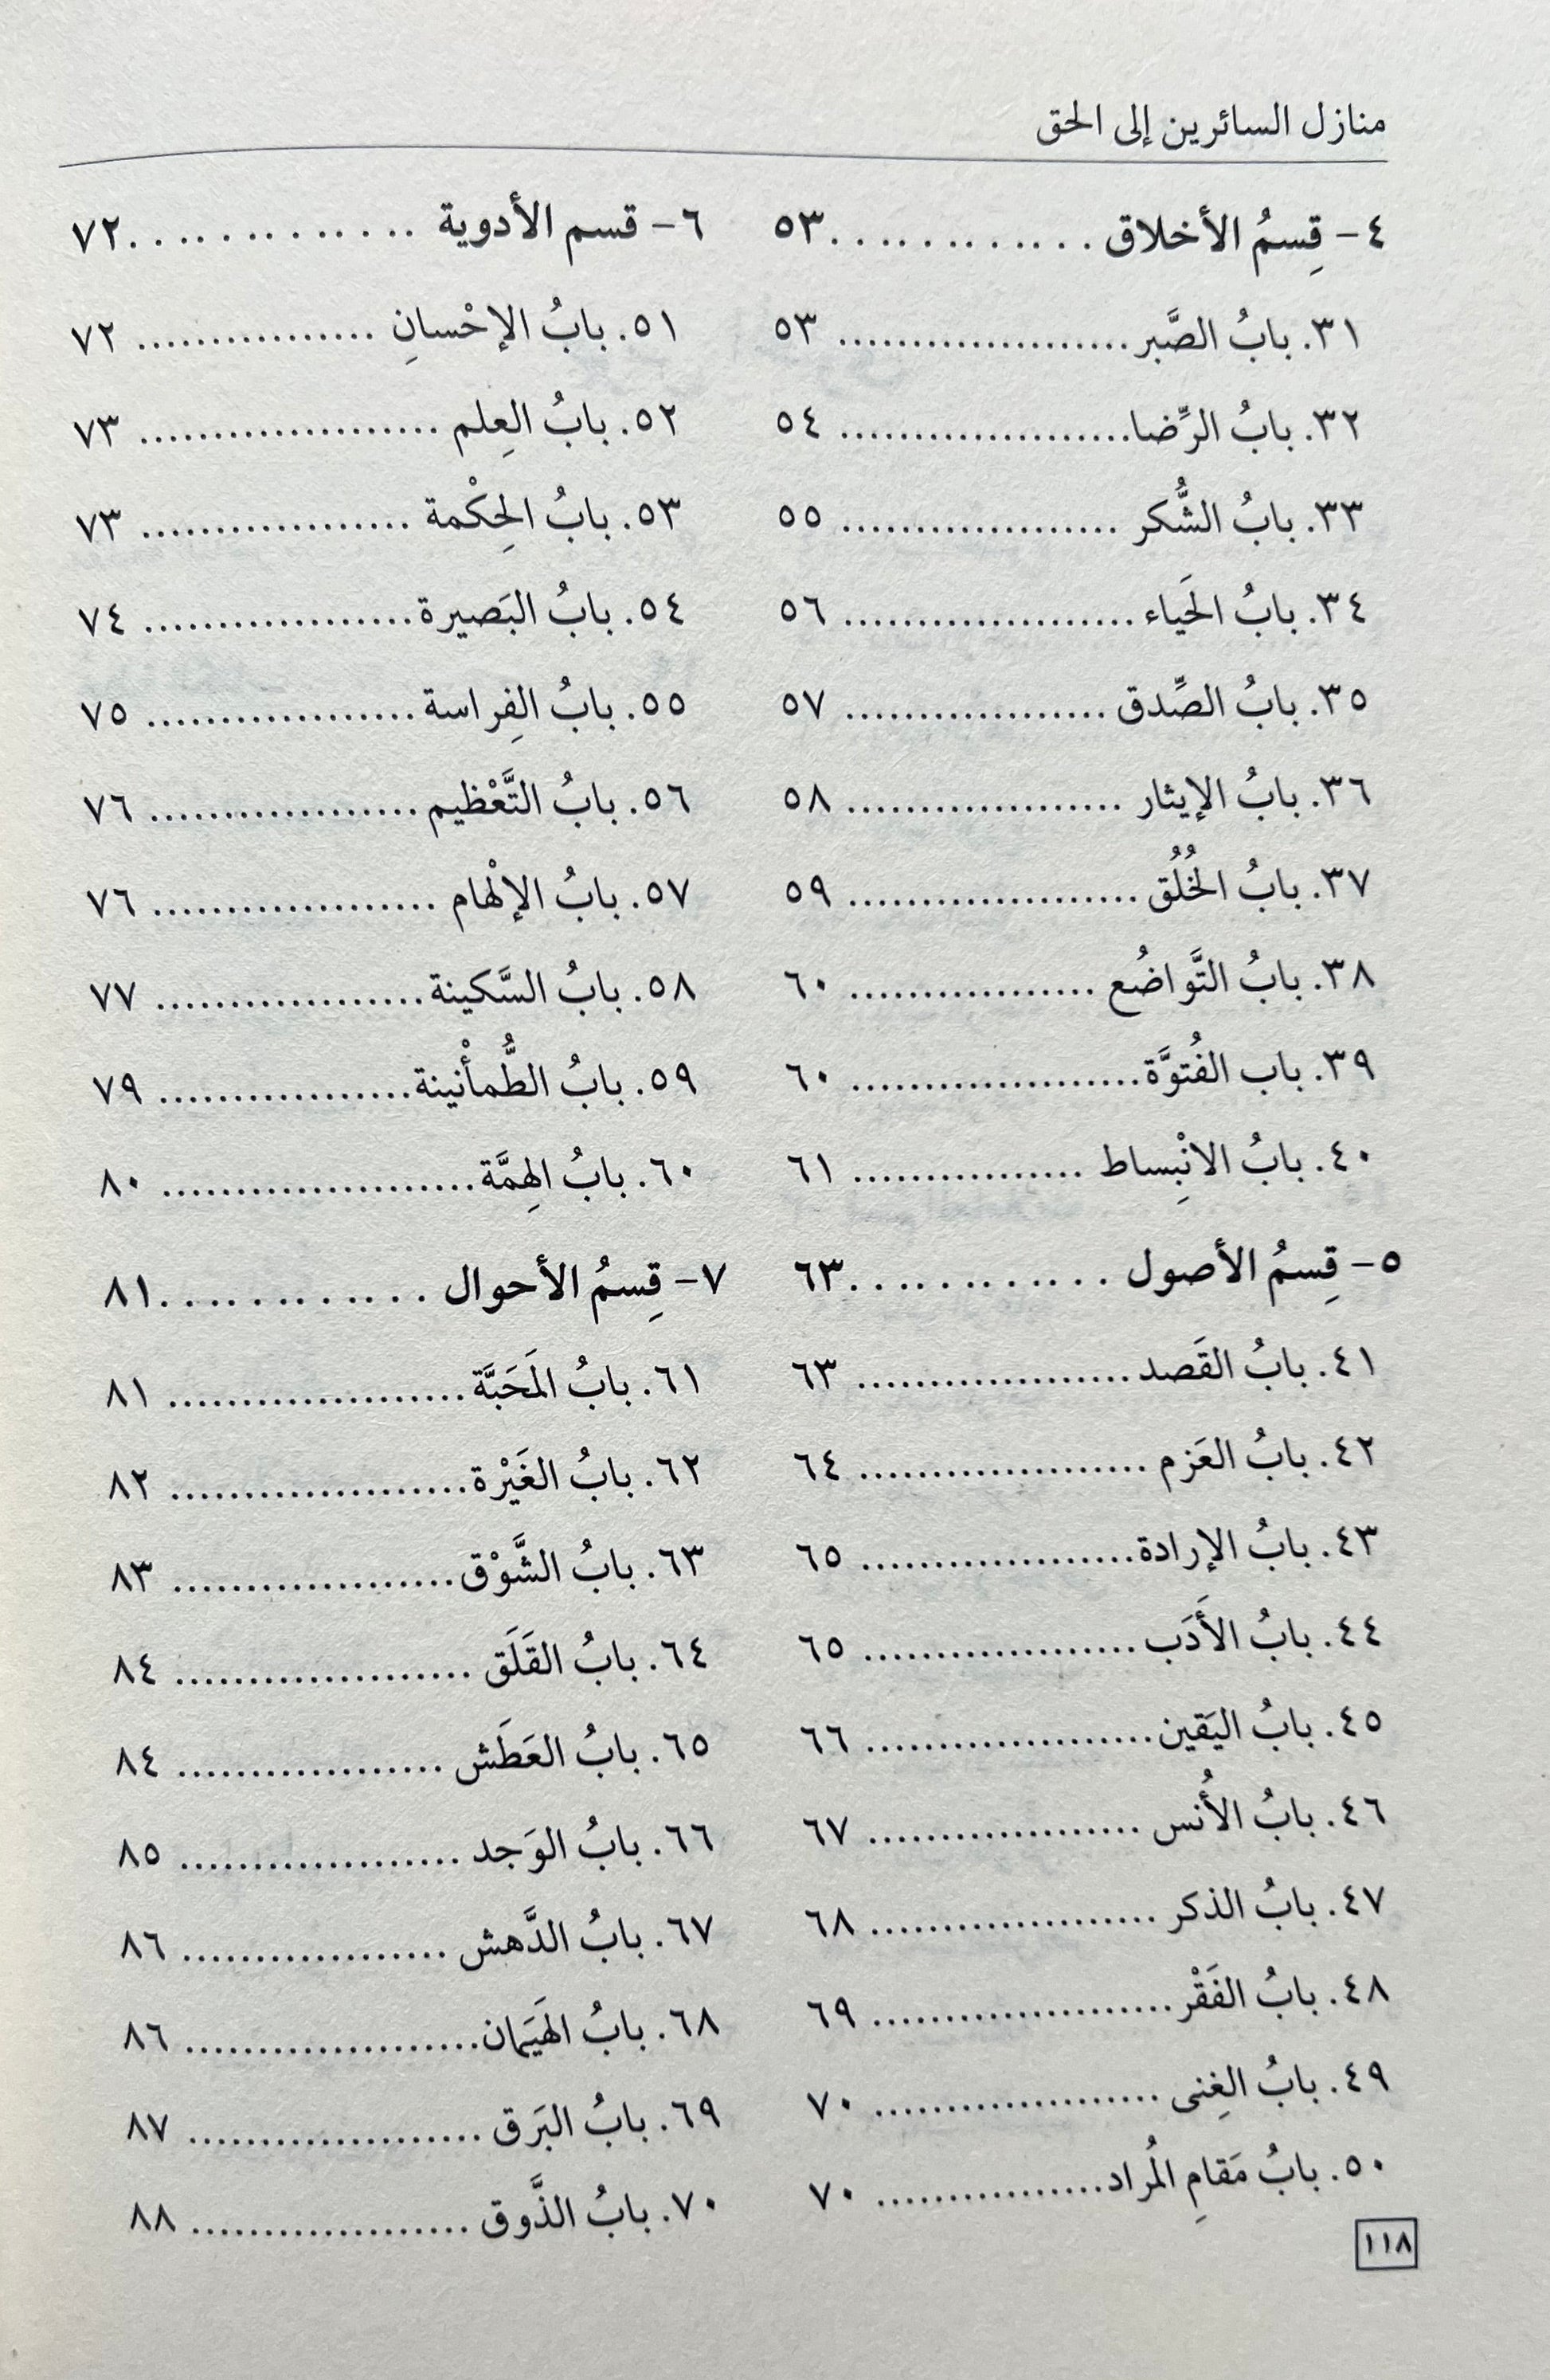 منازل السائرين إلى الحق
٤- قِسمُ الأخلاق . . . . . . . . . . . . ٥٣
٣١. بابُ الصَّبر .................... ٥٣
٣٢. بابُ الرِّضا .................... ٥٤
٣٣. بابُ الشُّكر ................... ٥٥
٣٤. بابُ الحَياء .................... ٥٦
٣٥. بابُ الصِّدق .................. ٥٧
٣٦. بابُ الإيثار ................... ٥٨
٣٧. بابُ الخُلُق .................... ٥٩
٣٨. بابُ التَّواضُع ................. ٦٠
٣٩. باب الفُتوَّة .................... ٦٠
٤٠. بابُ الانْبِساط ................ ٦١
٥- قِسمُ الأصول . . . . . . . . . . . . ٦٣
٤١. بابُ القَصد ................... ٦٣
٤٢. بابُ العَزم .................... ٦٤
٤٣. بابُ الإرادة ................... ٦٥
٤٤. بابُ الأَدَب ................... ٦٥
٤٥. بابُ اليَقين .................... ٦٦
٤٦. بابُ الأُنس ................... ٦٧
٤٧. بابُ الذكر .................... ٦٨
٤٨. بابُ الفَقْر ..................... ٦٩
٤٩. بابُ الغِنى .................... ٧٠
٥٠. بابُ مَقامِ المُراد ................ ٧٠
٦- قسم الأدوية . . . . . . . . . . . . ٧٢
٥١. بابُ الإحْسانِ ................ ٧٢
٥٢. بابُ العِلم ..................... ٧٣
٥٣. بابُ الحِكْمة ................... ٧٣
٥٤. بابُ البَصيرة ................... ٧٤
٥٥. بابُ الفِراسة ................... ٧٥
٥٦. بابُ التَّعْظيم ................... ٧٦
٥٧. بابُ الإلْهام .................... ٧٦
٥٨. بابُ السَّكينة ................... ٧٧
٥٩. بابُ الطُّمأْنينة .................. ٧٩
٦٠. بابُ الهِمَّة ...................... ٨٠
٧- قِسمُ الأحوال . . . . . . . . . . . . ٨١
٦١. بابُ المَحَبَّة ..................... ٨١
٦٢. بابُ الغَيْرة ..................... ٨٢
٦٣. بابُ الشَّوْق .................... ٨٣
٦٤. بابُ القَلَق ..................... ٨٤
٦٥. بابُ العَطَش ................... ٨٤
٦٦. بابُ الوَجد .................... ٨٥
٦٧. بابُ الدَّهش ................... ٨٦
٦٨. بابُ الهَيَمان .................... ٨٦
٦٩. بابُ البَرق .................... ٨٧
٧٠. بابُ الذَّوق ................... ٨٨
١١٨